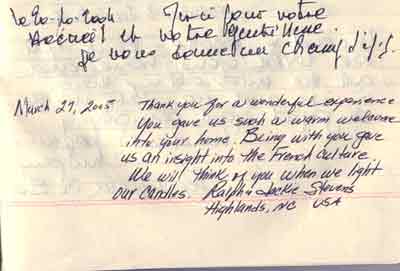 le 20-10-2004 Merci pour votre
Accueil et votre gentillesse.
Je vous donne un champ d'
March 27, 2005 Thank you for a wonderful experience
You gave us such a warm welcome
into your home. Being with you gave
us an insight into the French culture.
We will think of you when we light
our candles. Ralph & Jackie Stevens
Highlands, NC USA